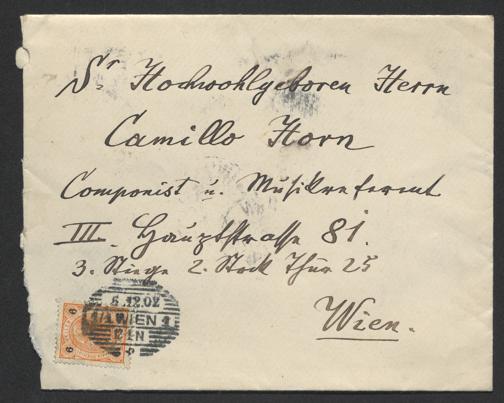 Sr Hochwohlgeboren Herrn
Camillo Horn
Componist u. Musikreferent
III. Hauptstrasse 81.
3. Stiege 2. Stock Thür 25
Wien.
6 6
5.12.02
1/1 WIEN 1